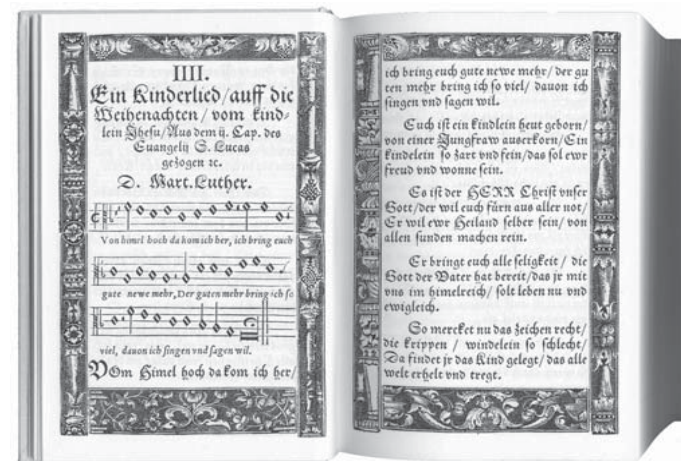 IIII.
Ein Kinderlied/auff die
Weihenachten/vom kind-
lein Jhesu/Aus dem ij. Cap. des
Euangelij S. Lucas
gezogen ꝛc.
D. Mart. Luther.
Von himel hoch da kom ich her, ich bring euch
gute newe mehr, Der guten mehr bring ich so
viel, dauon ich singen vnd sagen wil.
VOm Himel hoch da kom ich her/
ich bring euch gute newe mehr/der gu
ten mehr bring ich so viel/dauon ich
singen vnd sagen wil.
Euch ist ein kindlein heut geborn/
von einer Jungfraw auserkorn/Ein
kindelein so zart vnd fein/das sol ewr
freud vnd wonne sein.
Es ist der HERR Christ vnser
Gott/der wil euch fürn aus aller not/
Er wil ewr Heiland selber sein/von
allen sunden machen rein.
Er bringt euch alle seligkeit / die
Gott der Vater hat bereit/das jr mit
vns im himelreich/ solt leben nu vnd
ewigleich.
So mercket nu das zeichen recht/
die krippen / windelein so schlecht/
Da findet jr das Kind gelegt/das alle
welt erhelt vnd tregt.